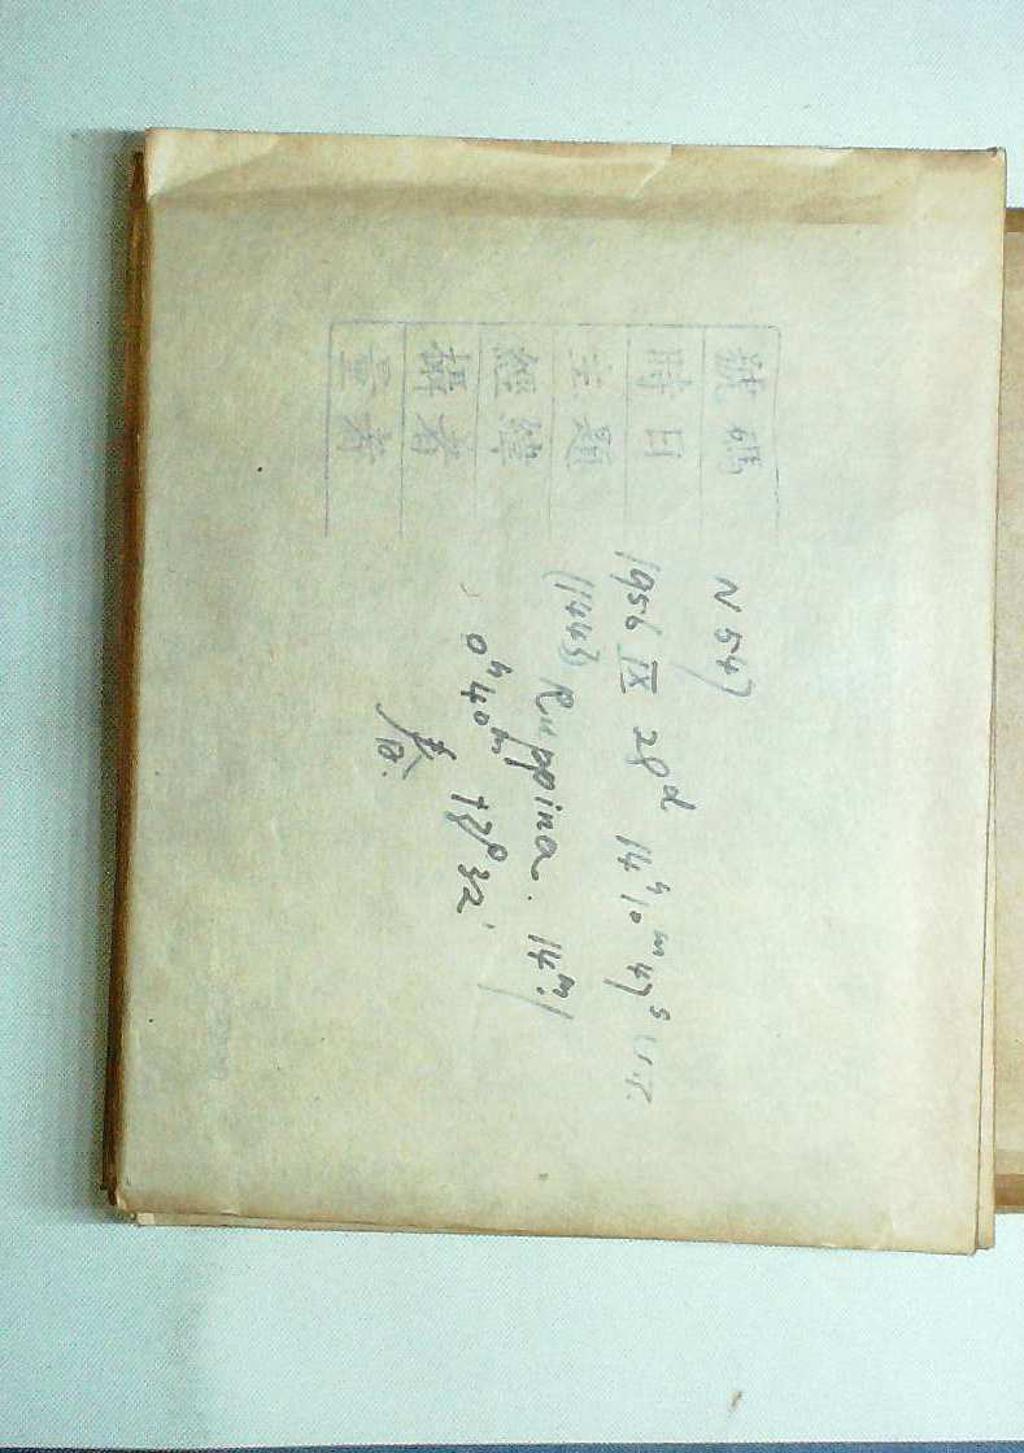 號碼 N 547
時日 1956 IX 28ᵈ 14ʰ10ᵐ47ˢ U.T.
主題 (1443) Ruppina. 14ᵐ.1
經緯 0ʰ40ᵐ +8°32'
攝者
量者